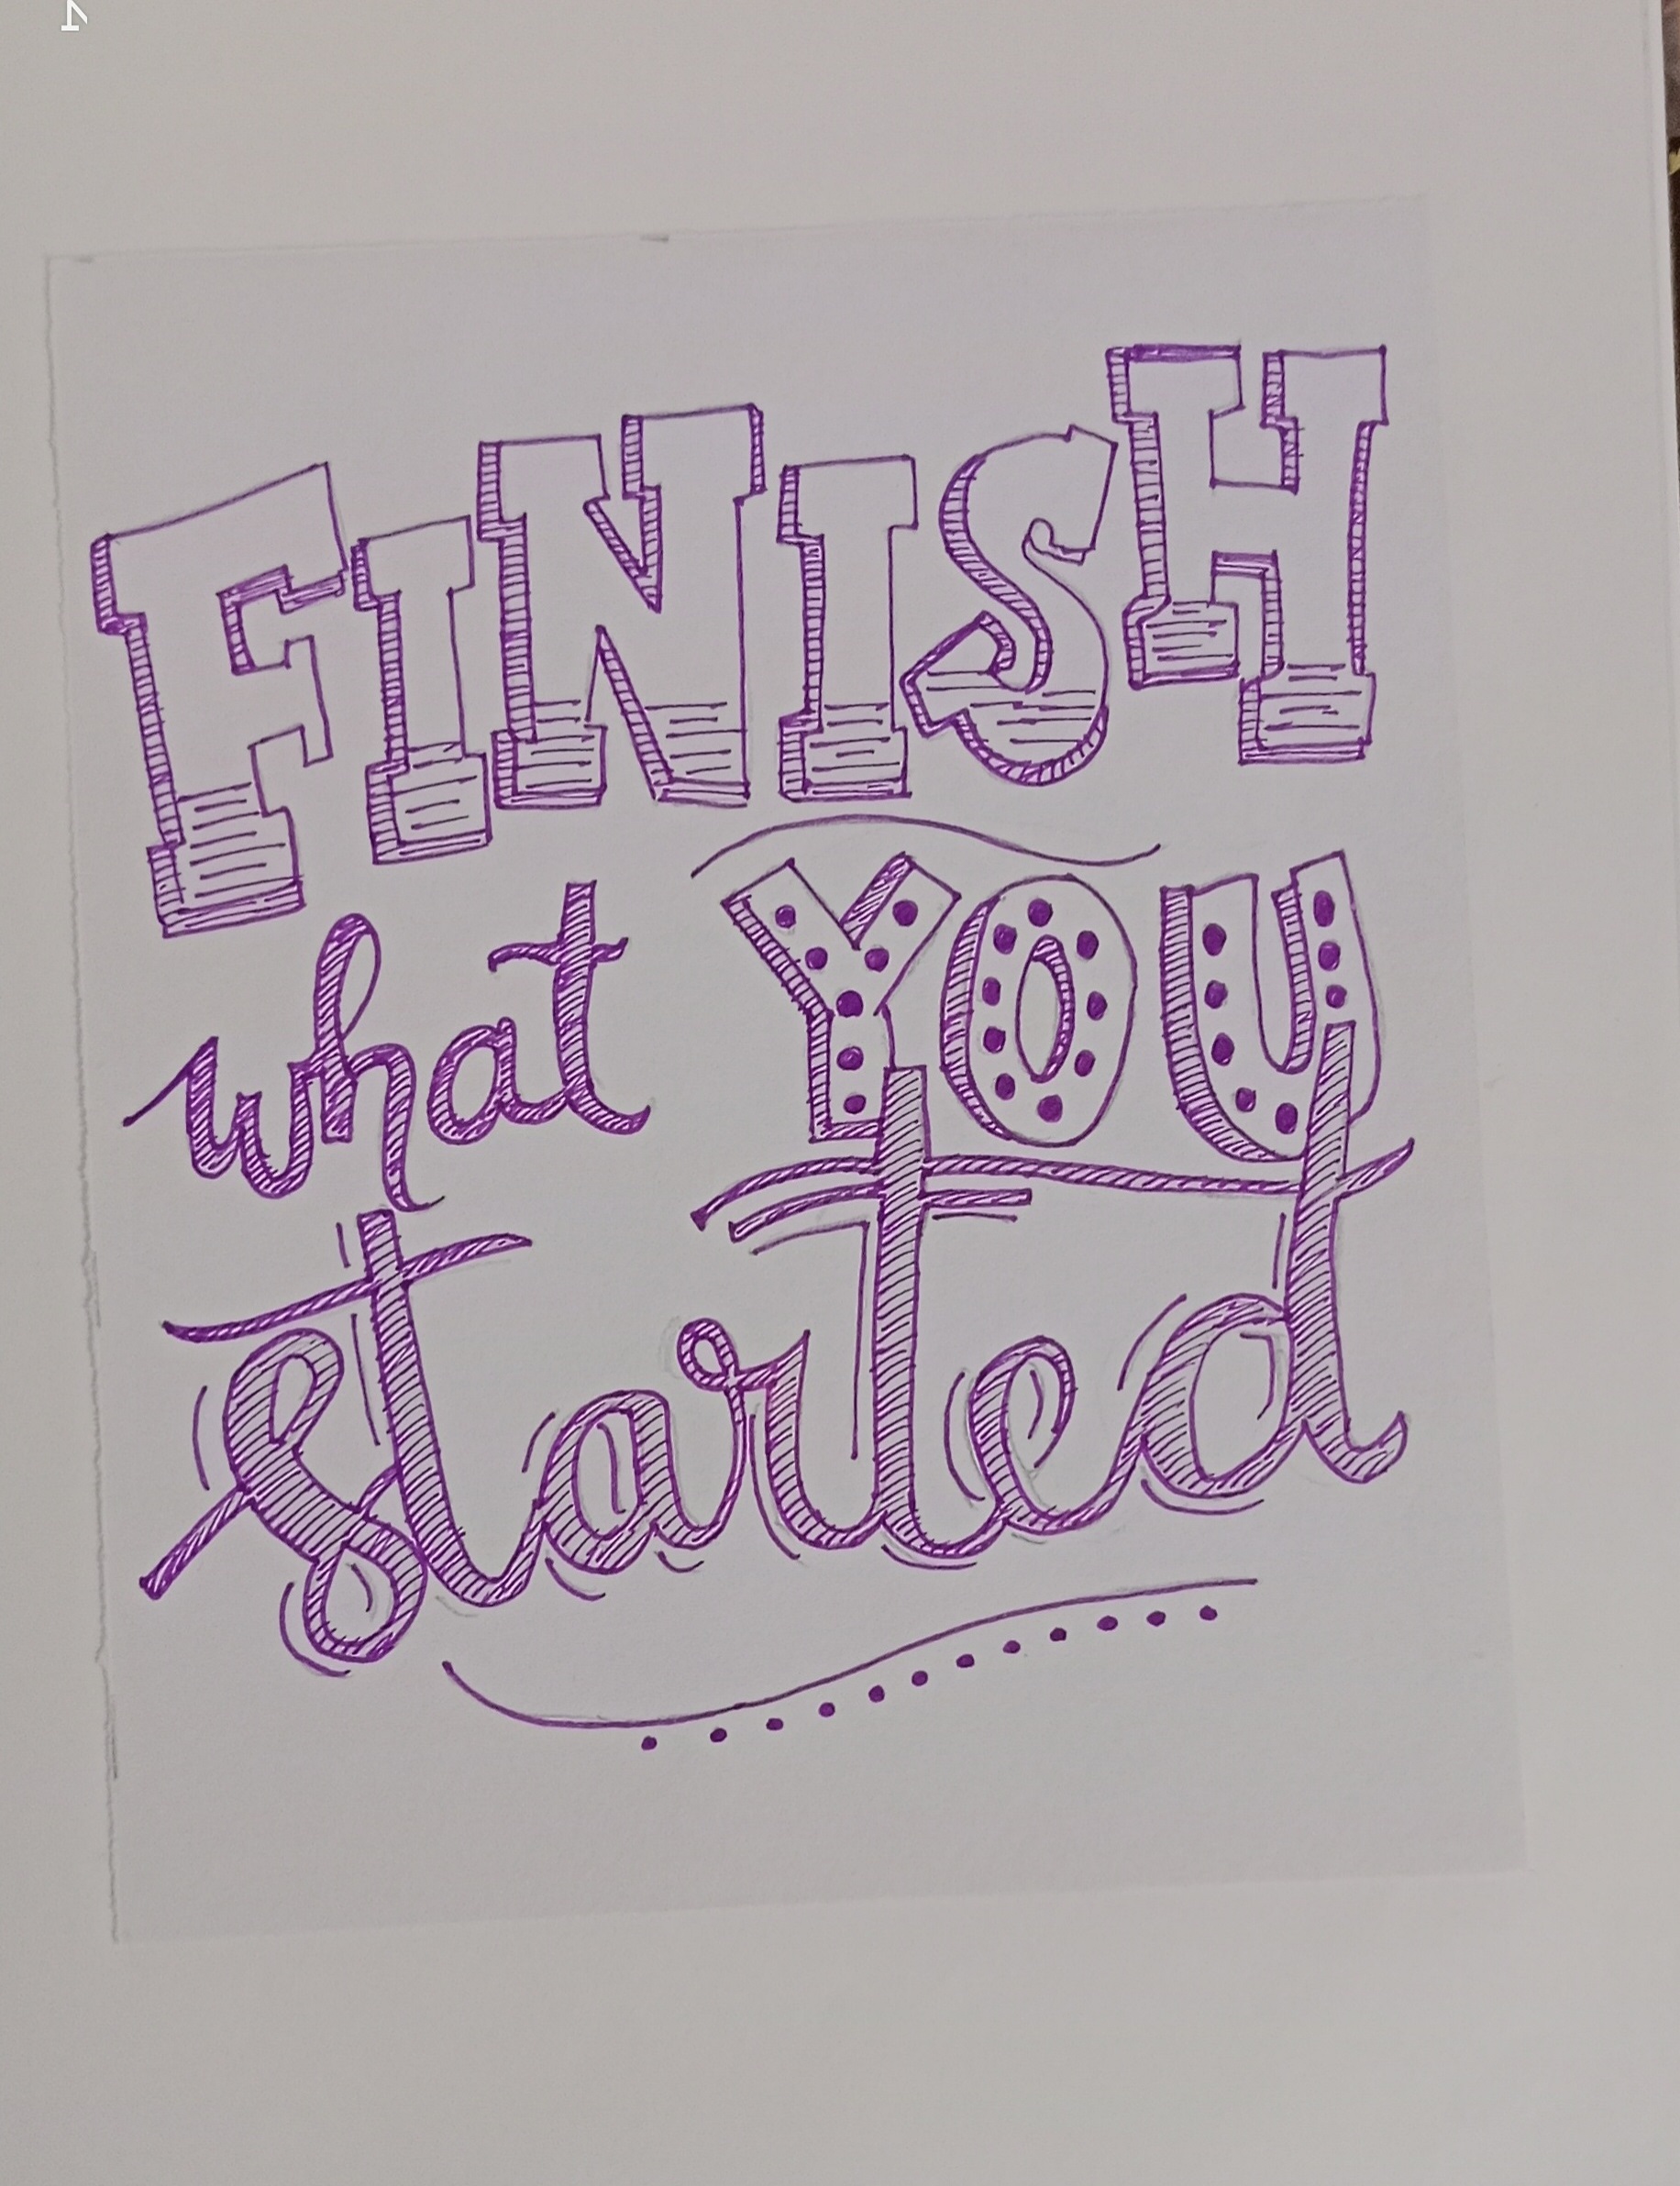 FINISH
what YOU
started